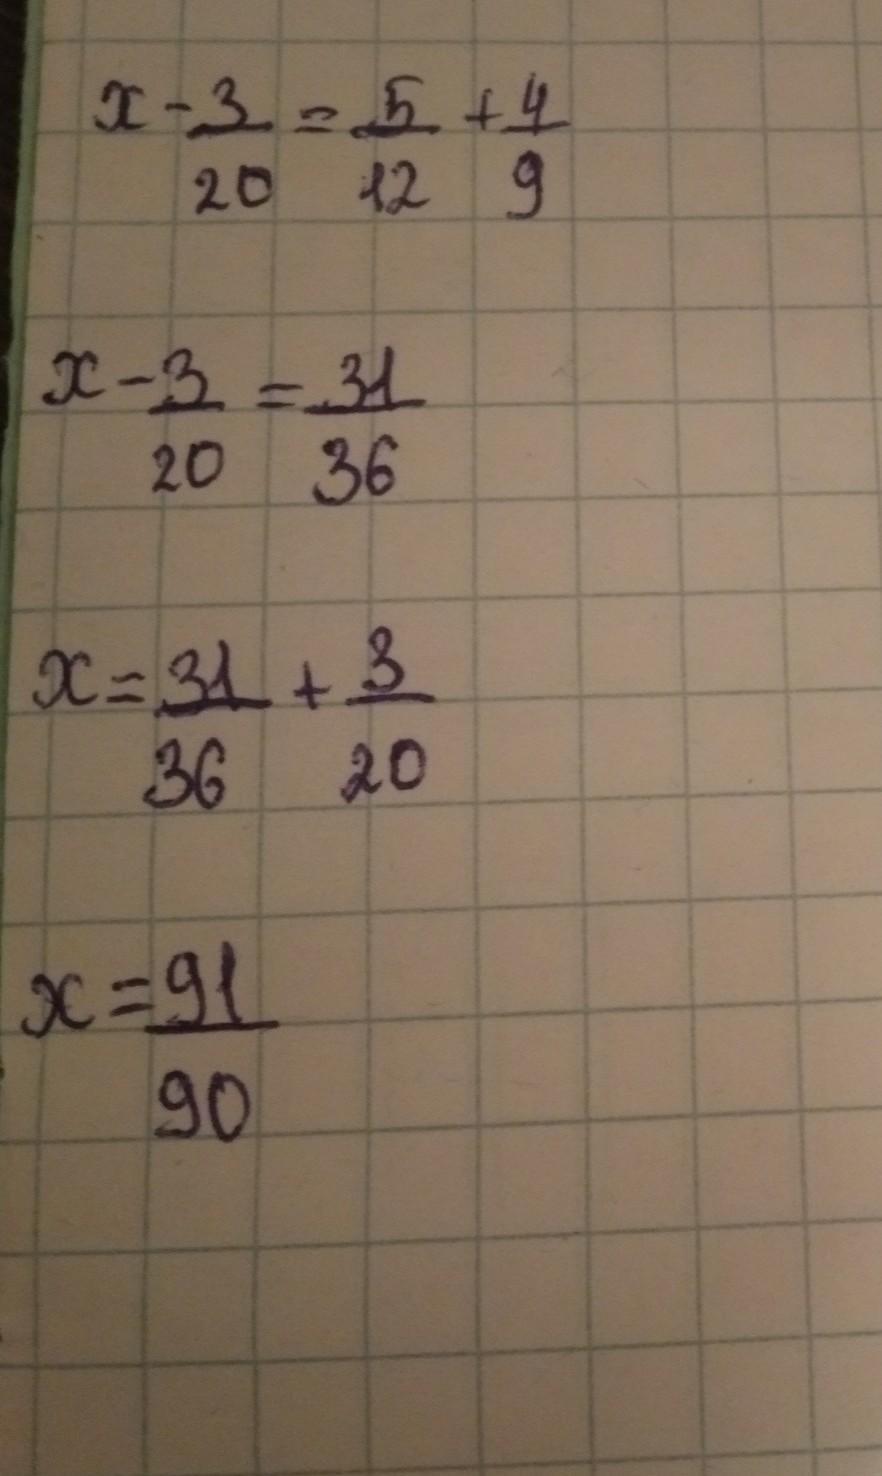 x - 3/20 = 5/12 + 4/9
x - 3/20 = 31/36
x = 31/36 + 3/20
x = 91/90